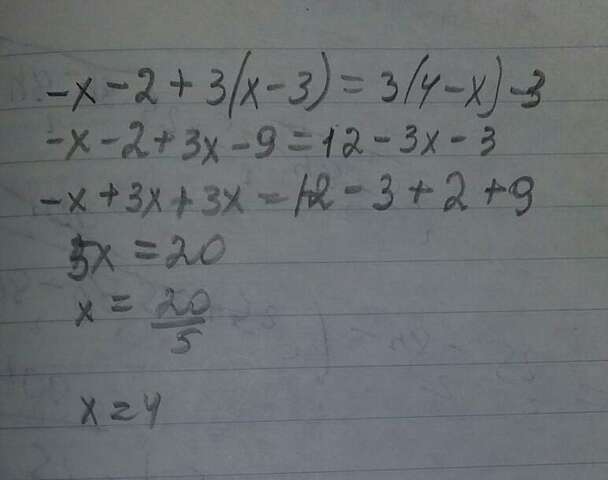 -x-2+3(x-3)=3(4-x)-3
-x-2+3x-9=12-3x-3
-x+3x+3x=12-3+2+9
5x=20
x=20/5
x=4